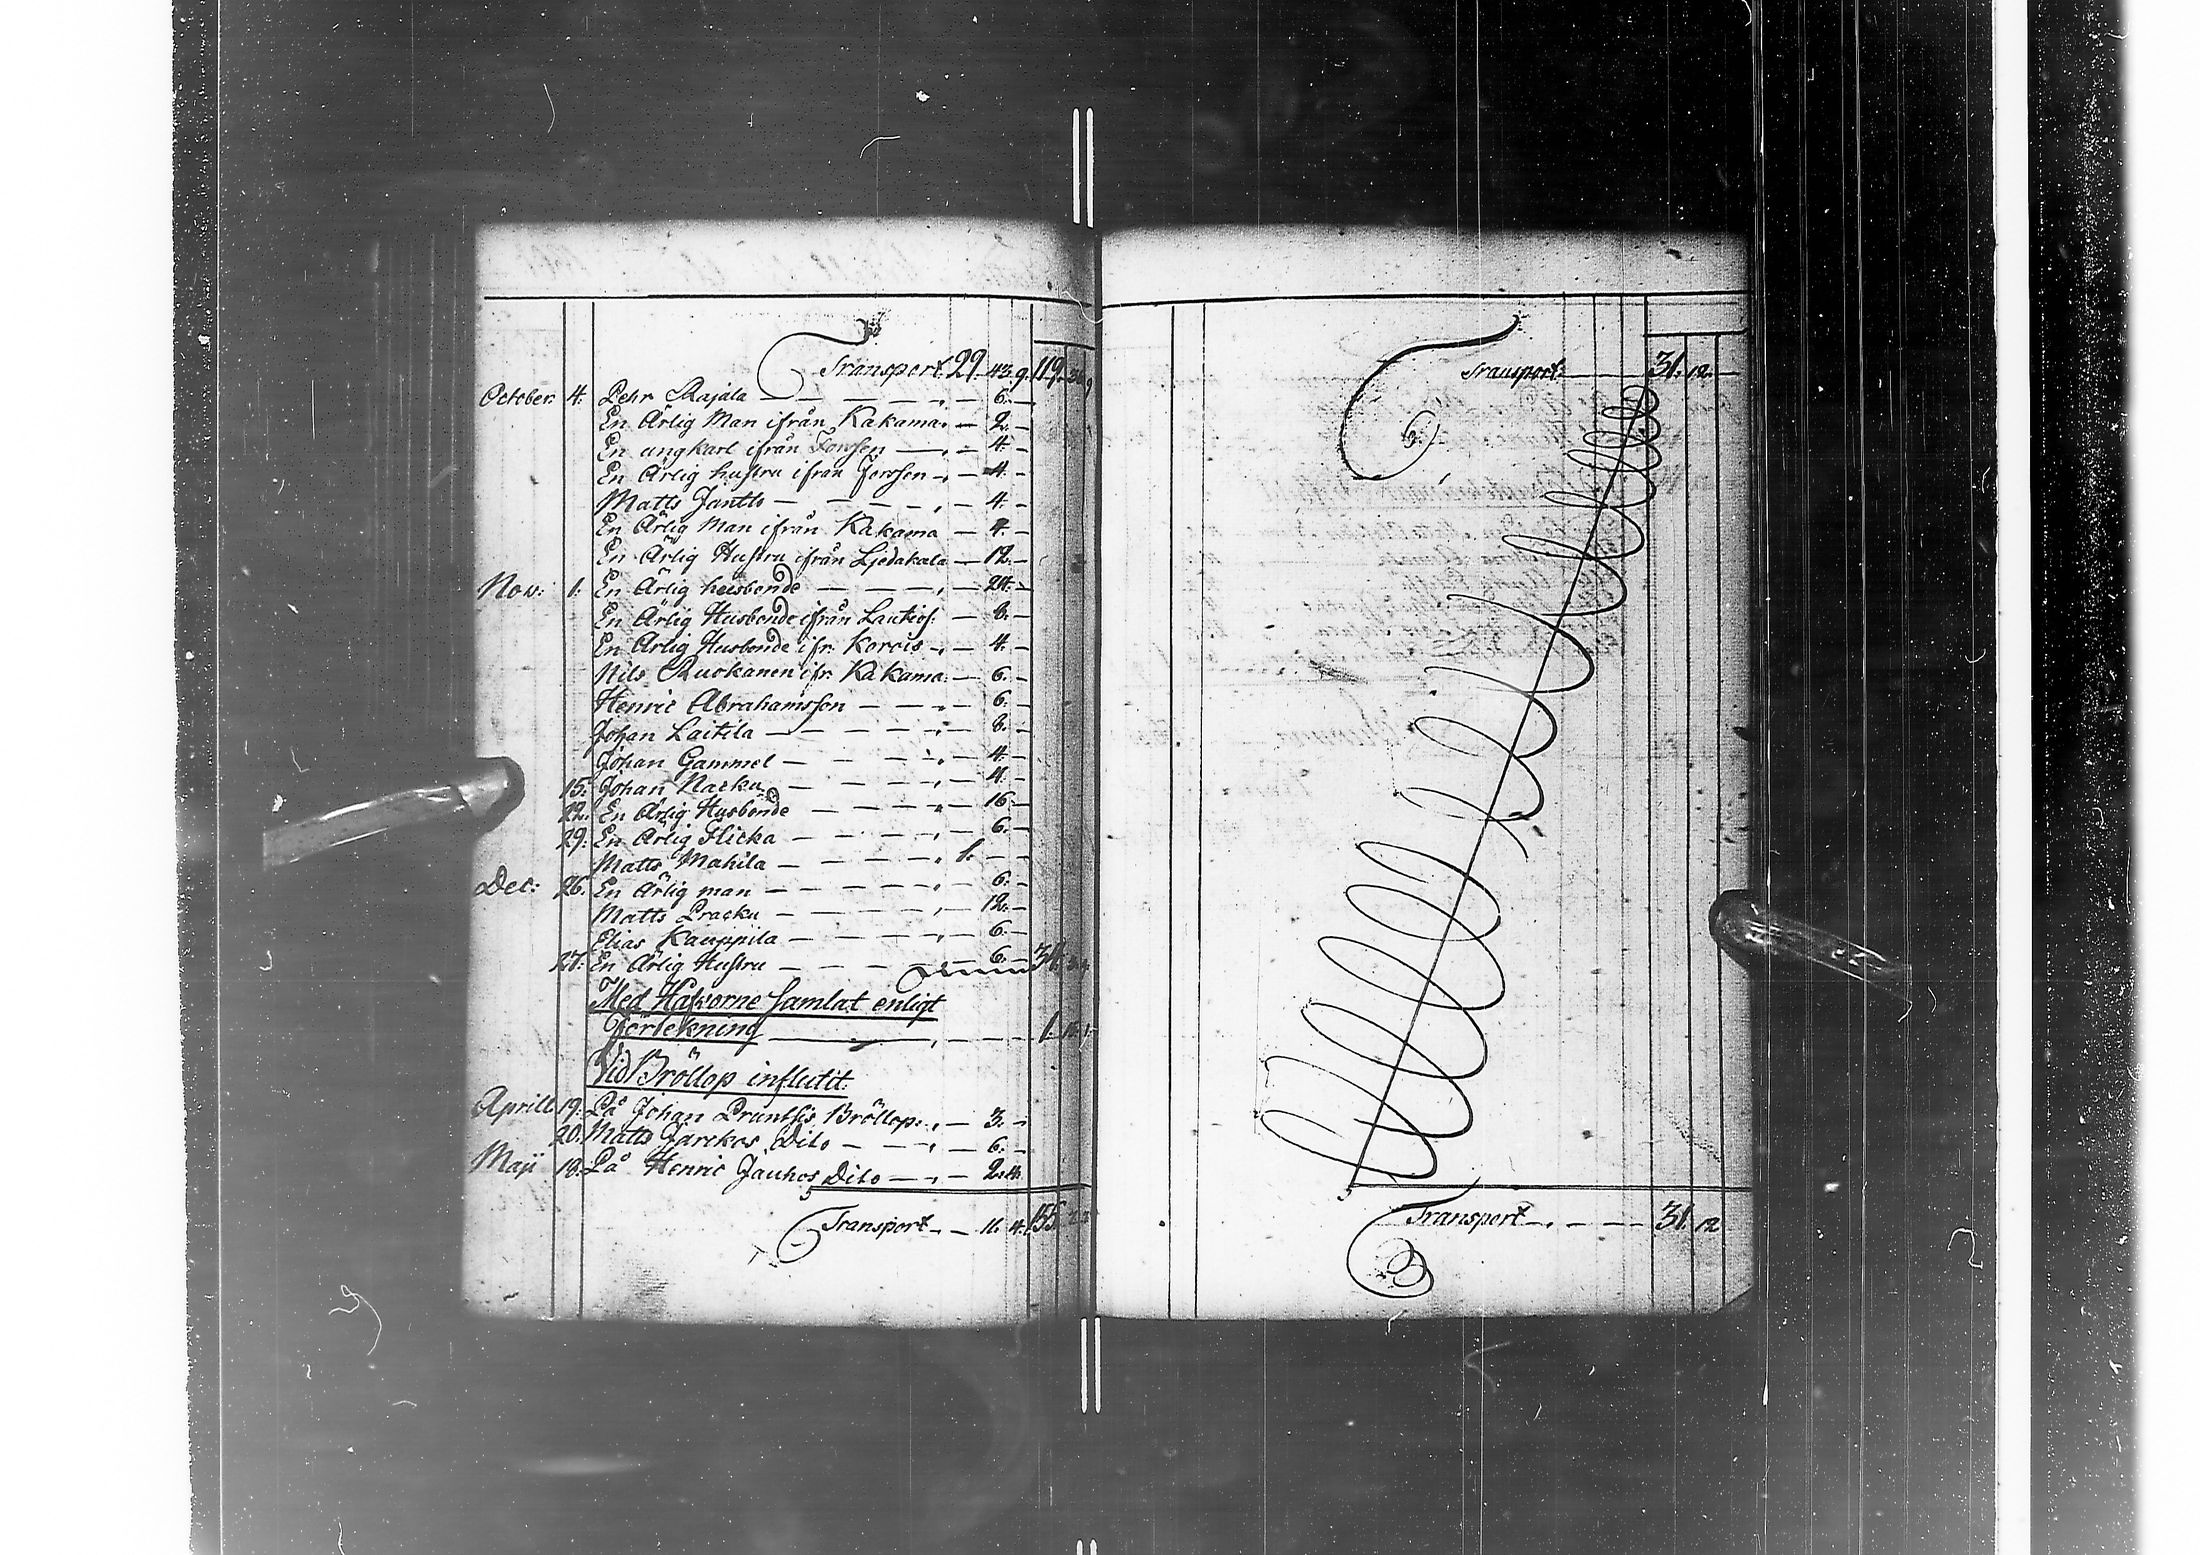 Transport 29. 43. 9. 119.
October. 4. Pehr Rajala — — — — — 6. —
En Ärlig Man ifrån Kakama. — 2. —
En ungkarl ifrån Forssen — — 4. —
En Ärlig hustru ifrån Forssen — — 4. —
Matts Jantto — — — — — 4. —
En Ärlig Man ifrån Kakama — 4. —
En Ärlig Hustru ifrån Ljedakala — 12. —
Nov: 1. En Ärlig husbonde — — — — 24. —
En Ärlig Husbonde ifrån Lautios: — 8. —
En Ärlig Husbonde ifr. Korois — — 4. —
Nils Ruokanen ifr. Kakama. — 6. —
Henric Abrahamsson — — — — 6. —
Johan Laitila — — — — — 8. —
Johan Gammel — — — — 4. —
15. Johan Narku — — — — — 4. —
22. En Ärlig Husbonde — — — — 16. —
29. En Ärlig Flicka — — — — 6. —
Matts Mahila — — — — 1. — —
Dec: 26. En Ärlig man — — — — — 6. —
Matts Pracku — — — — — 12. —
Elias Kauppila — — — — — 6. —
27. En Ärlig Hustru — — — — 6. — 34.
Med Håfvorne samlat enligt
förtekning — — — — 1.
Vid Bröllop influtit.
Aprill 19. På Johan Pruntsis Bröllop. — 3. —
20. Matts Jarckos Dito — — — 6. —
Maji 18. På Henric Jauhos Dito — — 2. 4.
Transport — — 11. 4. 155.
Transport — — 31. 12. —
Transport — — — — 31. 12